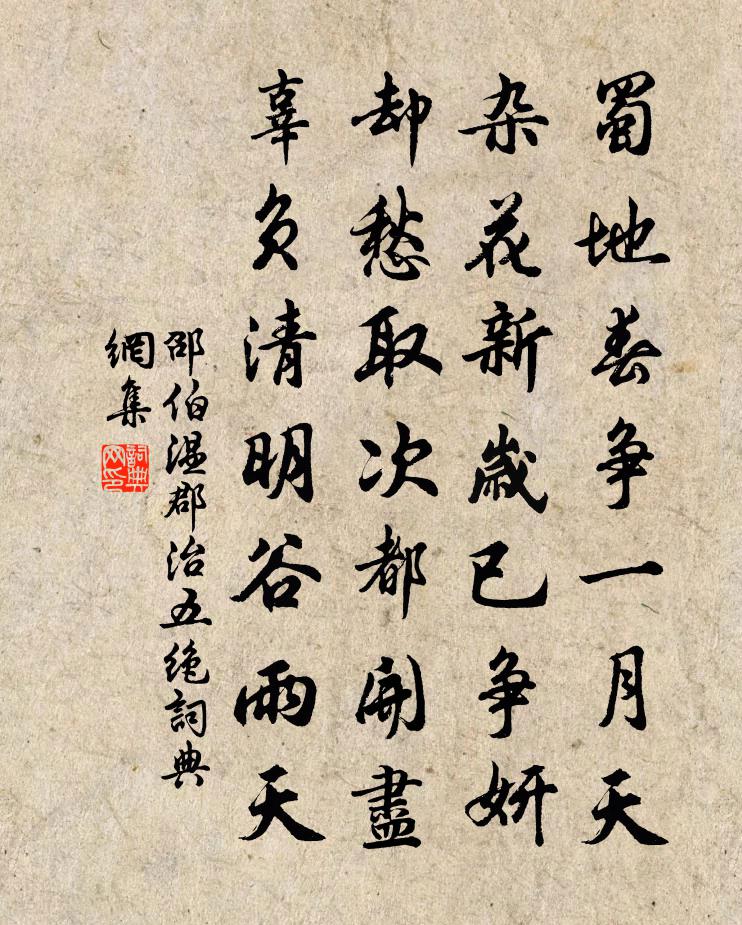 蜀地春争一月天
杂花新歲已争妍
却愁取次都開盡
辜負清明谷雨天
邵伯温郡治五绝詞典
網集
詞典
网印